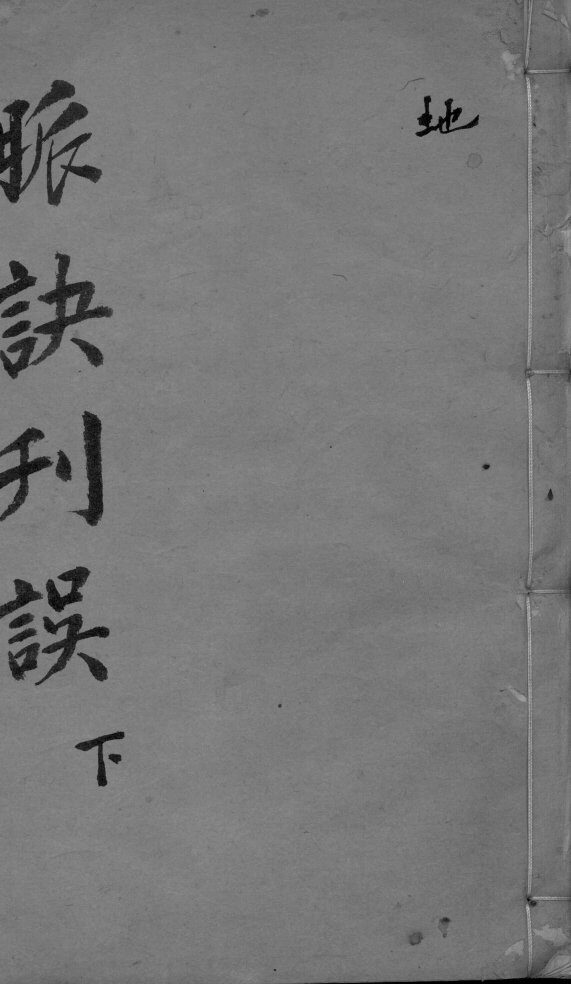 地
脈訣刊誤
下